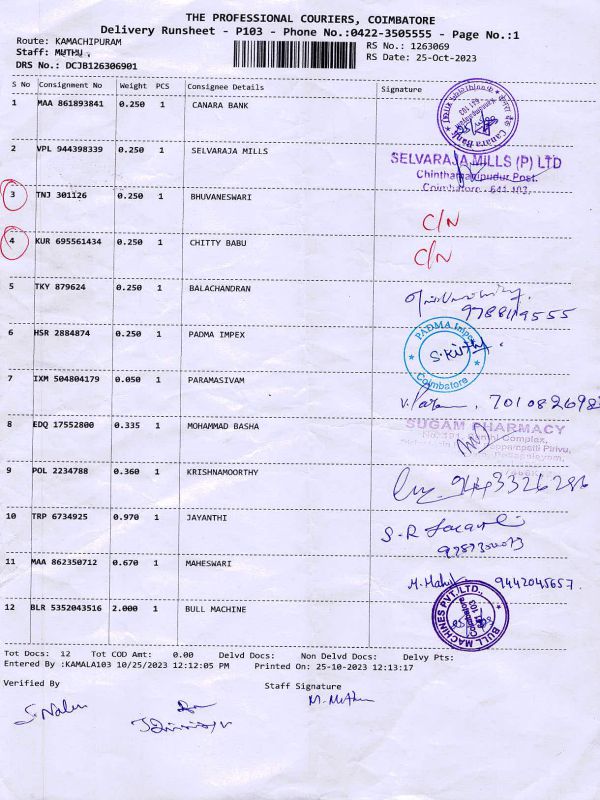 THE PROFESSIONAL COURIERS, COIMBATORE
Delivery Runsheet - P103 - Phone No.:0422-3505555 - Page No.:1
Route: KAMACHIPURAM
RS No.: 1263069
Staff: MUTHU .
RS Date: 25-Oct-2023
DRS No.: DCJB126306901
S No Consignment No Weight PCS Consignee Details Signature
1 MAA 861893841 0.250 1 CANARA BANK
Canara Bank
2 VPL 944398339 0.250 1 SELVARAJA MILLS
SELVARAJA MILLS (P) LTD
Chinthamanipudur Post.
Coimbatore - 641 103.
3 TNJ 301126 0.250 1 BHUVANESWARI C/N
4 KUR 695561434 0.250 1 CHITTY BABU C/N
5 TKY 879624 0.250 1 BALACHANDRAN
6 HSR 2884874 0.250 1 PADMA IMPEX
PADMA Impex
Coimbatore
7 IXM 504804179 0.050 1 PARAMASIVAM
8 EDQ 17552800 0.335 1 MOHAMMAD BASHA
SUGAM PHARMACY
9 POL 2234788 0.360 1 KRISHNAMOORTHY
9443326286
10 TRP 6734925 0.970 1 JAYANTHI
S-R
11 MAA 862350712 0.670 1 MAHESWARI
9442045657.
12 BLR 5352043516 2.000 1 BULL MACHINE
BULL MACHINES PVT.LTD.,
Tot Docs: 12 Tot COD Amt: 0.00 Delvd Docs: Non Delvd Docs: Delvy Pts:
Entered By :KAMALA103 10/25/2023 12:12:05 PM Printed On: 25-10-2023 12:13:17
Verified By
Staff Signature